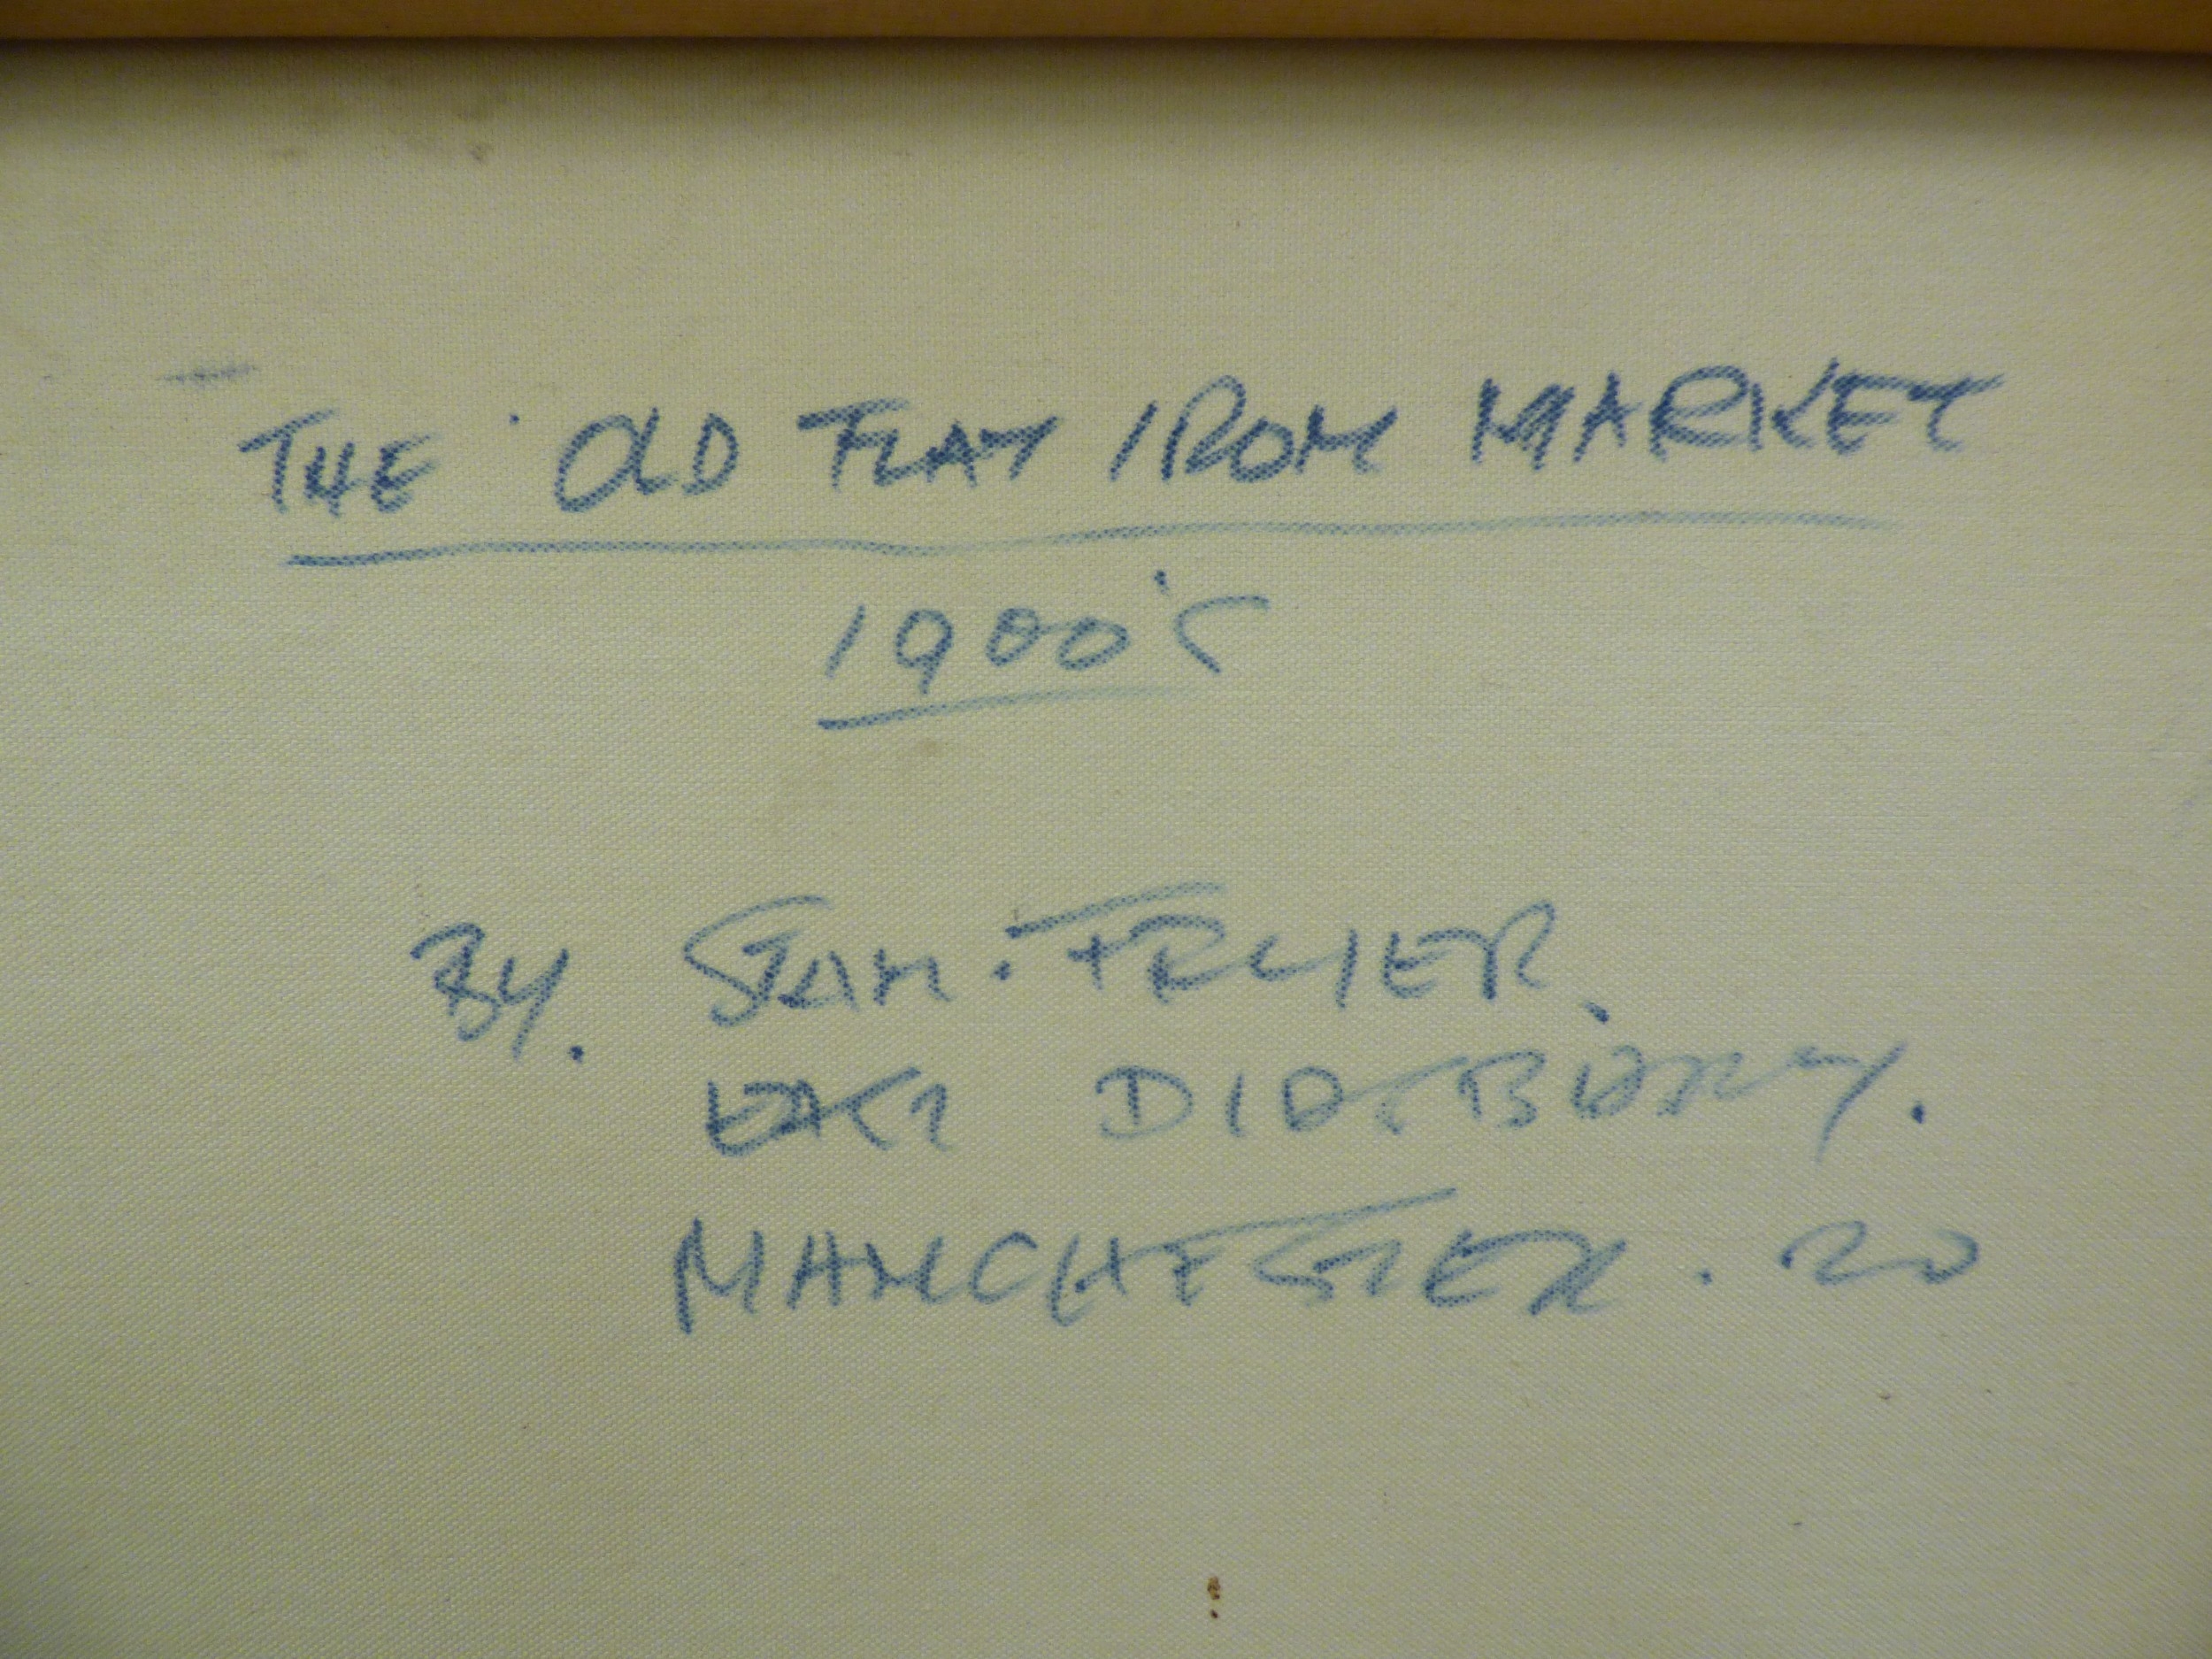 THE OLD FLAT IRON MARKET
1900'S
BY. STAN.
EAST DIDSBURY.
MANCHESTER. 20